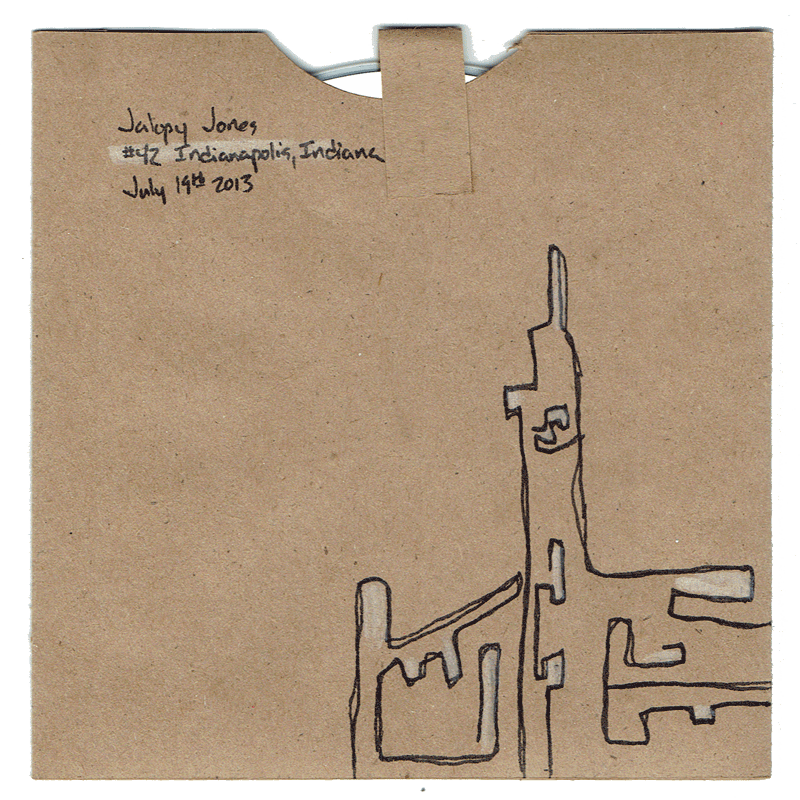 Jalopy Jones
#42 Indianapolis, Indiana
July 19th 2013